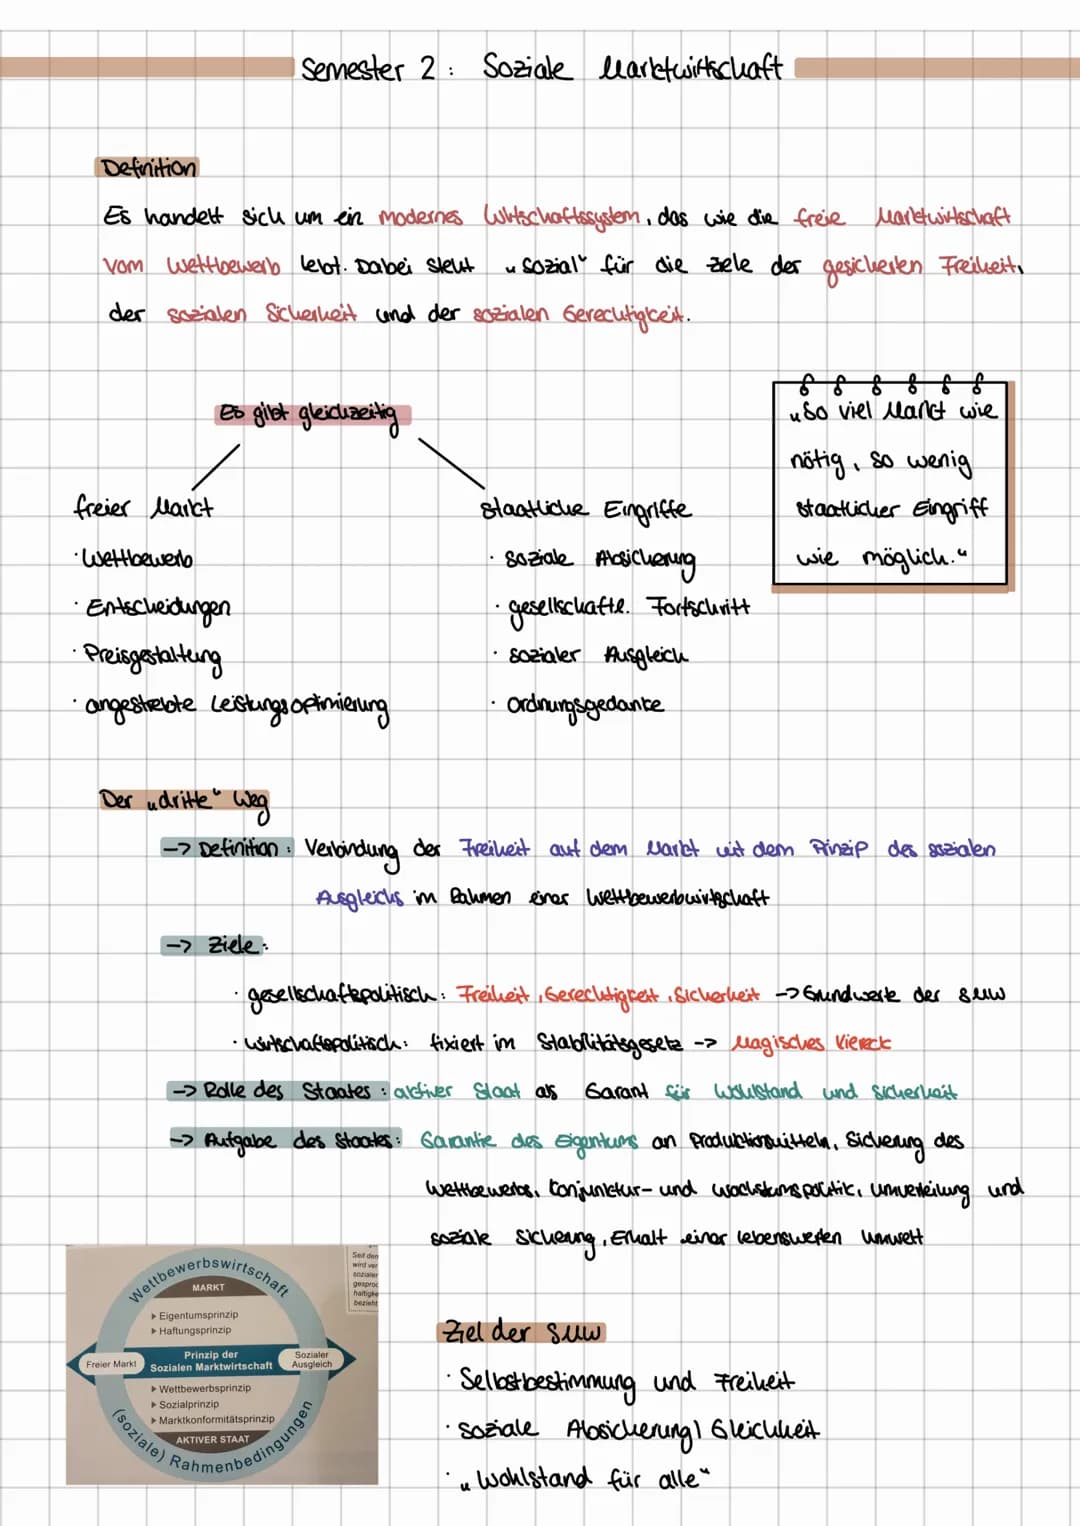 Semester 2: Soziale Marktwirtschaft
Definition
Es handelt sich um ein modernes Wirtschaftssystem, das wie die freie Marktwirtschaft
vom Wettbewerb lebt. Dabei steht „sozial“ für die Ziele der gesicherten Freiheit,
der sozialen Sicherheit und der sozialen Gerechtigkeit.
Es gibt gleichzeitig
freier Markt
· Wettbewerb
· Entscheidungen
· Preisgestaltung
· angestrebte Leistungsoptimierung
staatliche Eingriffe
· soziale Absicherung
· gesellschaftl. Fortschritt
· sozialer Ausgleich
· Ordnungsgedanke
„So viel Markt wie
nötig, so wenig
staatlicher Eingriff
wie möglich.“
Der „dritte“ Weg
-> Definition: Verbindung der Freiheit auf dem Markt mit dem Prinzip des sozialen
Ausgleichs im Rahmen einer Wettbewerbwirtschaft
-> Ziele:
· gesellschaftspolitisch: Freiheit, Gerechtigkeit, Sicherheit -> Grundwerte der SMW
· wirtschaftspolitisch: fixiert im Stabilitätsgesetz -> Magisches Viereck
-> Rolle des Staates: aktiver Staat als Garant für Wohlstand und Sicherheit
-> Aufgabe des Staates: Garantie des Eigentums an Produktionsmitteln, Sicherung des
Wettbewerbs, Konjunktur- und Wachstumspolitik, Umverteilung und
soziale Sicherung, Erhalt einer lebenswerten Umwelt
Wettbewerbswirtschaft
MARKT
▸ Eigentumsprinzip
▸ Haftungsprinzip
Freier Markt
Prinzip der
Sozialen Marktwirtschaft
Sozialer
Ausgleich
▸ Wettbewerbsprinzip
▸ Sozialprinzip
▸ Marktkonformitätsprinzip
AKTIVER STAAT
(soziale) Rahmenbedingungen
Seit den
wird ver
sozialer
gesproc
haltigke
bezieht
Ziel der SMW
· Selbstbestimmung und Freiheit
· soziale Absicherung / Gleichheit
· „Wohlstand für alle“